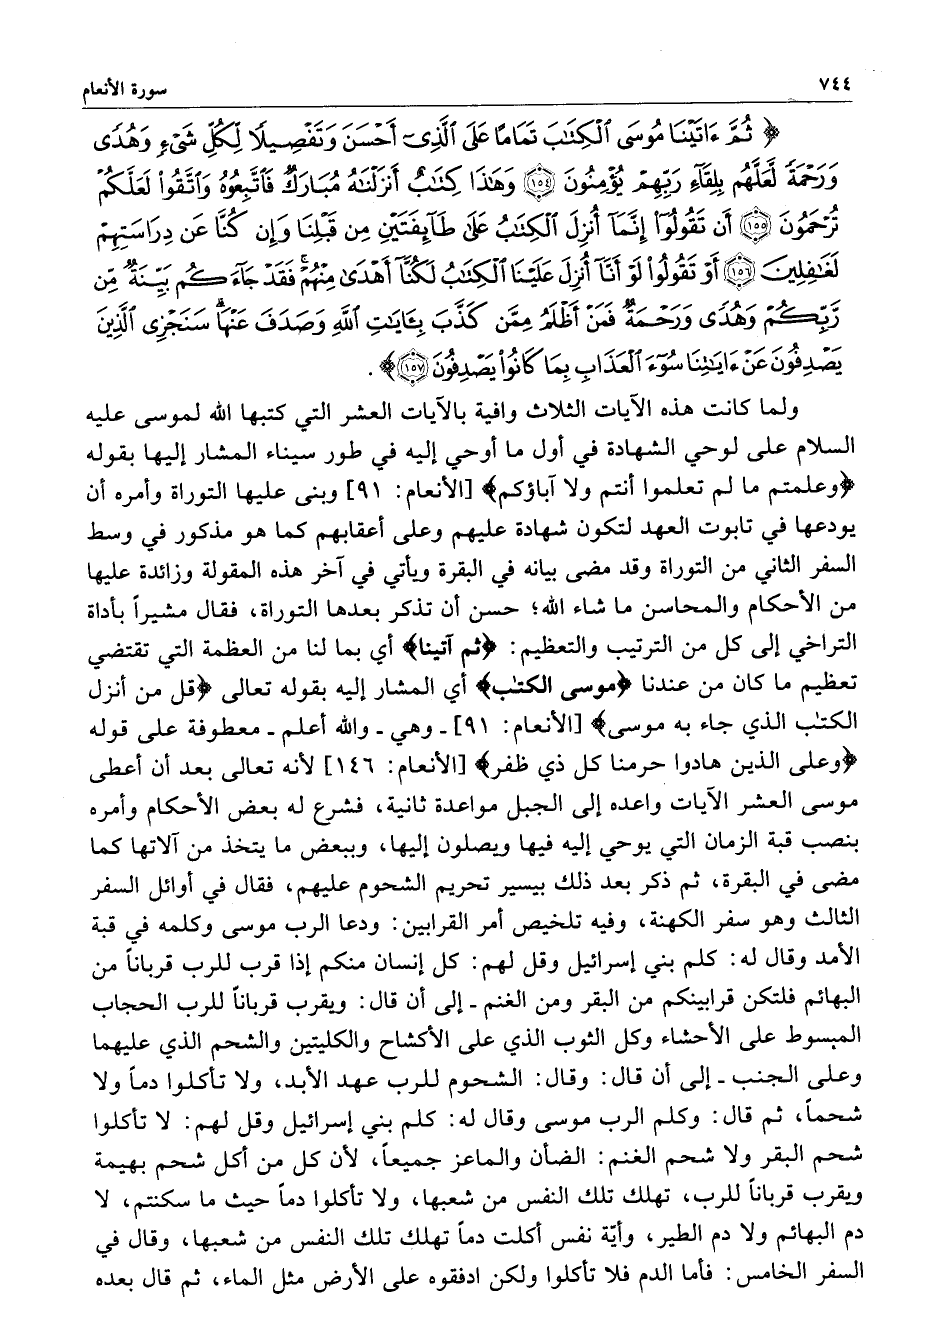 ٧٤٤ سورة الأنعام
﴿ ثُمَّ ءَاتَيْنَا مُوسَى ٱلْكِتَٰبَ تَمَامًا عَلَى ٱلَّذِىٓ أَحْسَنَ وَتَفْصِيلًا لِّكُلِّ شَىْءٍ وَهُدًى
وَرَحْمَةً لَّعَلَّهُم بِلِقَآءِ رَبِّهِمْ يُؤْمِنُونَ ١٥٤ وَهَٰذَا كِتَٰبٌ أَنزَلْنَٰهُ مُبَارَكٌ فَٱتَّبِعُوهُ وَٱتَّقُوا۟ لَعَلَّكُمْ
تُرْحَمُونَ ١٥٥ أَن تَقُولُوٓا۟ إِنَّمَآ أُنزِلَ ٱلْكِتَٰبُ عَلَىٰ طَآئِفَتَيْنِ مِن قَبْلِنَا وَإِن كُنَّا عَن دِرَاسَتِهِمْ
لَغَٰفِلِينَ ١٥٦ أَوْ تَقُولُوا۟ لَوْ أَنَّآ أُنزِلَ عَلَيْنَا ٱلْكِتَٰبُ لَكُنَّآ أَهْدَىٰ مِنْهُمْ ۚ فَقَدْ جَآءَكُم بَيِّنَةٌ مِّن
رَّبِّكُمْ وَهُدًى وَرَحْمَةٌ ۚ فَمَنْ أَظْلَمُ مِمَّن كَذَّبَ بِـَٔايَٰتِ ٱللَّهِ وَصَدَفَ عَنْهَا ۗ سَنَجْزِى ٱلَّذِينَ
يَصْدِفُونَ عَنْ ءَايَٰتِنَا سُوٓءَ ٱلْعَذَابِ بِمَا كَانُوا۟ يَصْدِفُونَ ١٥٧ ﴾ .
ولما كانت هذه الآيات الثلاث وافية بالآيات العشر التي كتبها الله لموسى عليه
السلام على لوحي الشهادة في أول ما أوحي إليه في طور سيناء المشار إليها بقوله
﴿وعلمتم ما لم تعلموا أنتم ولا آباؤكم﴾ [الأنعام: ٩١] وبنى عليها التوراة وأمره أن
يودعها في تابوت العهد لتكون شهادة عليهم وعلى أعقابهم كما هو مذكور في وسط
السفر الثاني من التوراة وقد مضى بيانه في البقرة ويأتي في آخر هذه المقولة وزائدة عليها
من الأحكام والمحاسن ما شاء الله؛ حسن أن تذكر بعدها التوراة، فقال مشيراً بأداة
التراخي إلى كل من الترتيب والتعظيم: ﴿ثم آتينا﴾ أي بما لنا من العظمة التي تقتضي
تعظيم ما كان من عندنا ﴿موسى الكتٰب﴾ أي المشار إليه بقوله تعالى ﴿قل من أنزل
الكتٰب الذي جاء به موسى﴾ [الأنعام: ٩١] ـ وهي ـ والله أعلم ـ معطوفة على قوله
﴿وعلى الذين هادوا حرمنا كل ذي ظفر﴾ [الأنعام: ١٤٦] لأنه تعالى بعد أن أعطى
موسى العشر الآيات واعده إلى الجبل مواعدة ثانية، فشرع له بعض الأحكام وأمره
بنصب قبة الزمان التي يوحي إليه فيها ويصلون إليها، وببعض ما يتخذ من آلاتها كما
مضى في البقرة، ثم ذكر بعد ذلك بيسير تحريم الشحوم عليهم، فقال في أوائل السفر
الثالث وهو سفر الكهنة، وفيه تلخيص أمر القرابين: ودعا الرب موسى وكلمه في قبة
الأمد وقال له: كلم بني إسرائيل وقل لهم: كل إنسان منكم إذا قرب للرب قرباناً من
البهائم فلتكن قرابينكم من البقر ومن الغنم ـ إلى أن قال: ويقرب قرباناً للرب الحجاب
المبسوط على الأحشاء وكل الثوب الذي على الأكشاح والكليتين والشحم الذي عليهما
وعلى الجنب ـ إلى أن قال: وقال: الشحوم للرب عهد الأبد، ولا تأكلوا دماً ولا
شحماً، ثم قال: وكلم الرب موسى وقال له: كلم بني إسرائيل وقل لهم: لا تأكلوا
شحم البقر ولا شحم الغنم: الضأن والماعز جميعاً، لأن كل من أكل شحم بهيمة
ويقرب قرباناً للرب، تهلك تلك النفس من شعبها، ولا تأكلوا دماً حيث ما سكنتم، لا
دم البهائم ولا دم الطير، وأيّة نفس أكلت دماً تهلك تلك النفس من شعبها، وقال في
السفر الخامس: فأما الدم فلا تأكلوا ولكن ادفقوه على الأرض مثل الماء، ثم قال بعده